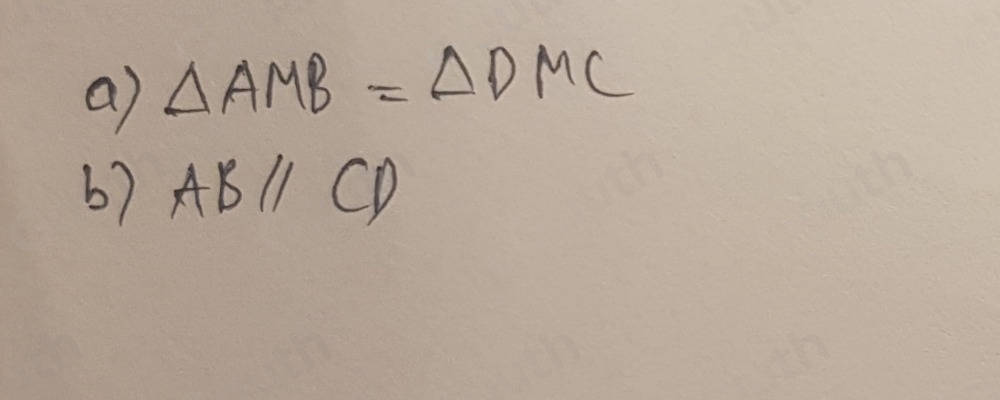 a) ΔAMB = ΔDMC
b) AB // CD